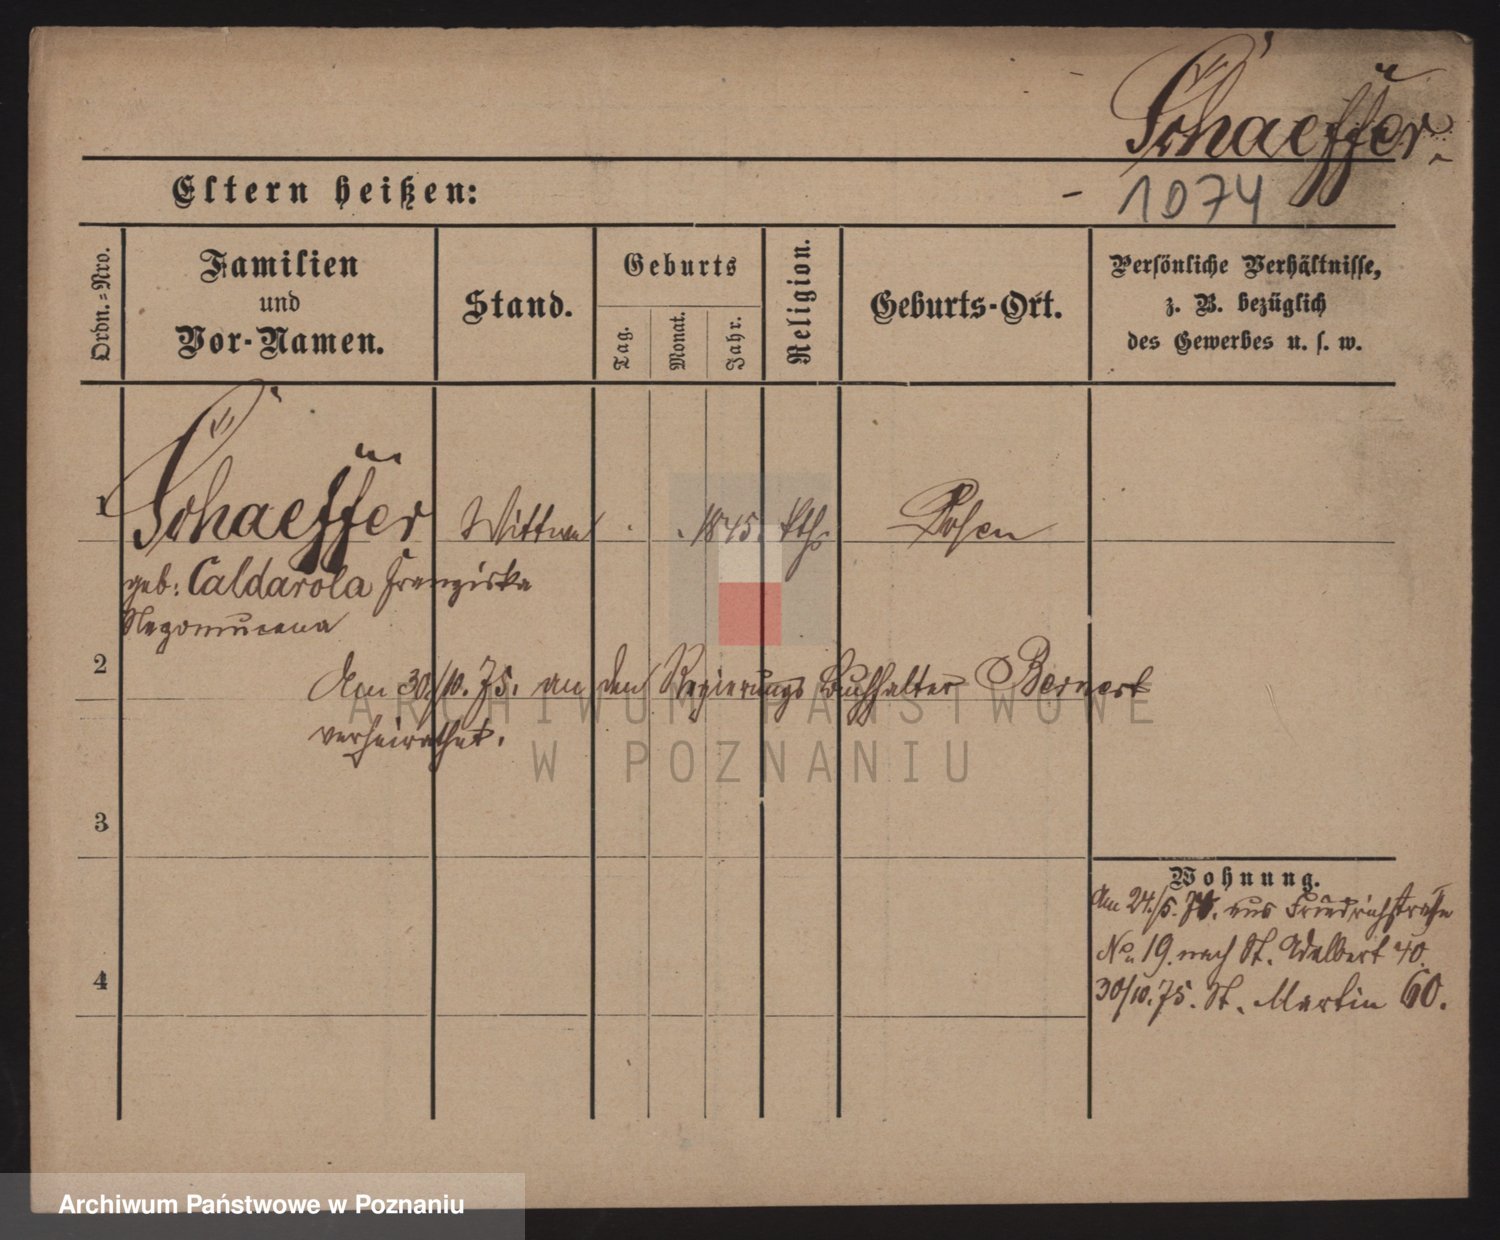 Schaeffer.
Eltern heißen:
- 1074
Ordn.=Nro.
Familien
und
Vor-Namen.
Stand.
Geburts
Tag.
Monat.
Jahr.
Religion.
Geburts-Ort.
Persönliche Verhältnisse,
z. B. bezüglich
des Gewerbes u. s. w.
1 Schaeffer Wittwe . . 1845. kth. Posen
geb: Caldarola Franziska
Nepomucena
2
Am 30/10. 75. an den Regierungs Buchhalter Bernert
verheirathet.
ARCHIWUM PAŃSTWOWE
W POZNANIU
3
Wohnung.
Am 24./5. 74. aus Friedrichstraße
No. 19. nach St. Adalbert 40.
4
30/10. 75. St. Martin 60.
Archiwum Państwowe w Poznaniu